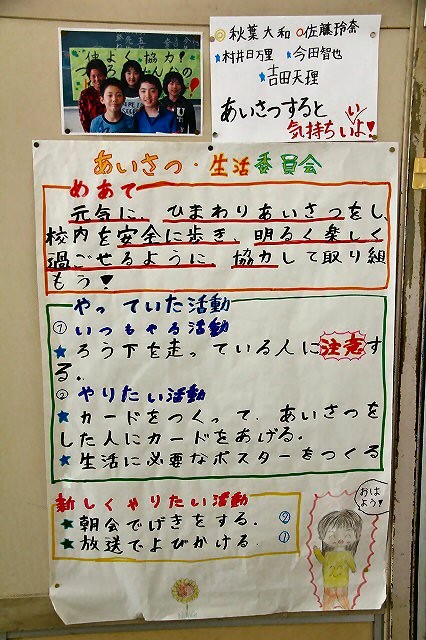 仲よく協力
◎秋葉大和 ○佐藤玲奈
★村井日万里 ★今田智也
★吉田天理
あいさつすると
気持ちいいよ!
あいさつ・生活委員会
めあて
元気に、ひまわりあいさつをし、
校内を安全に歩き、明るく楽しく
過ごせるように、協力して取り組
もう!
やっていた活動
①いつもやる活動
★ろう下を走っている人に注意す
る。
②やりたい活動
★カードをつくって、あいさつを
した人にカードをあげる。
★生活に必要なポスターをつくる
新しくやりたい活動
★朝会でげきをする。②
★放送でよびかける ①
おは
よう!